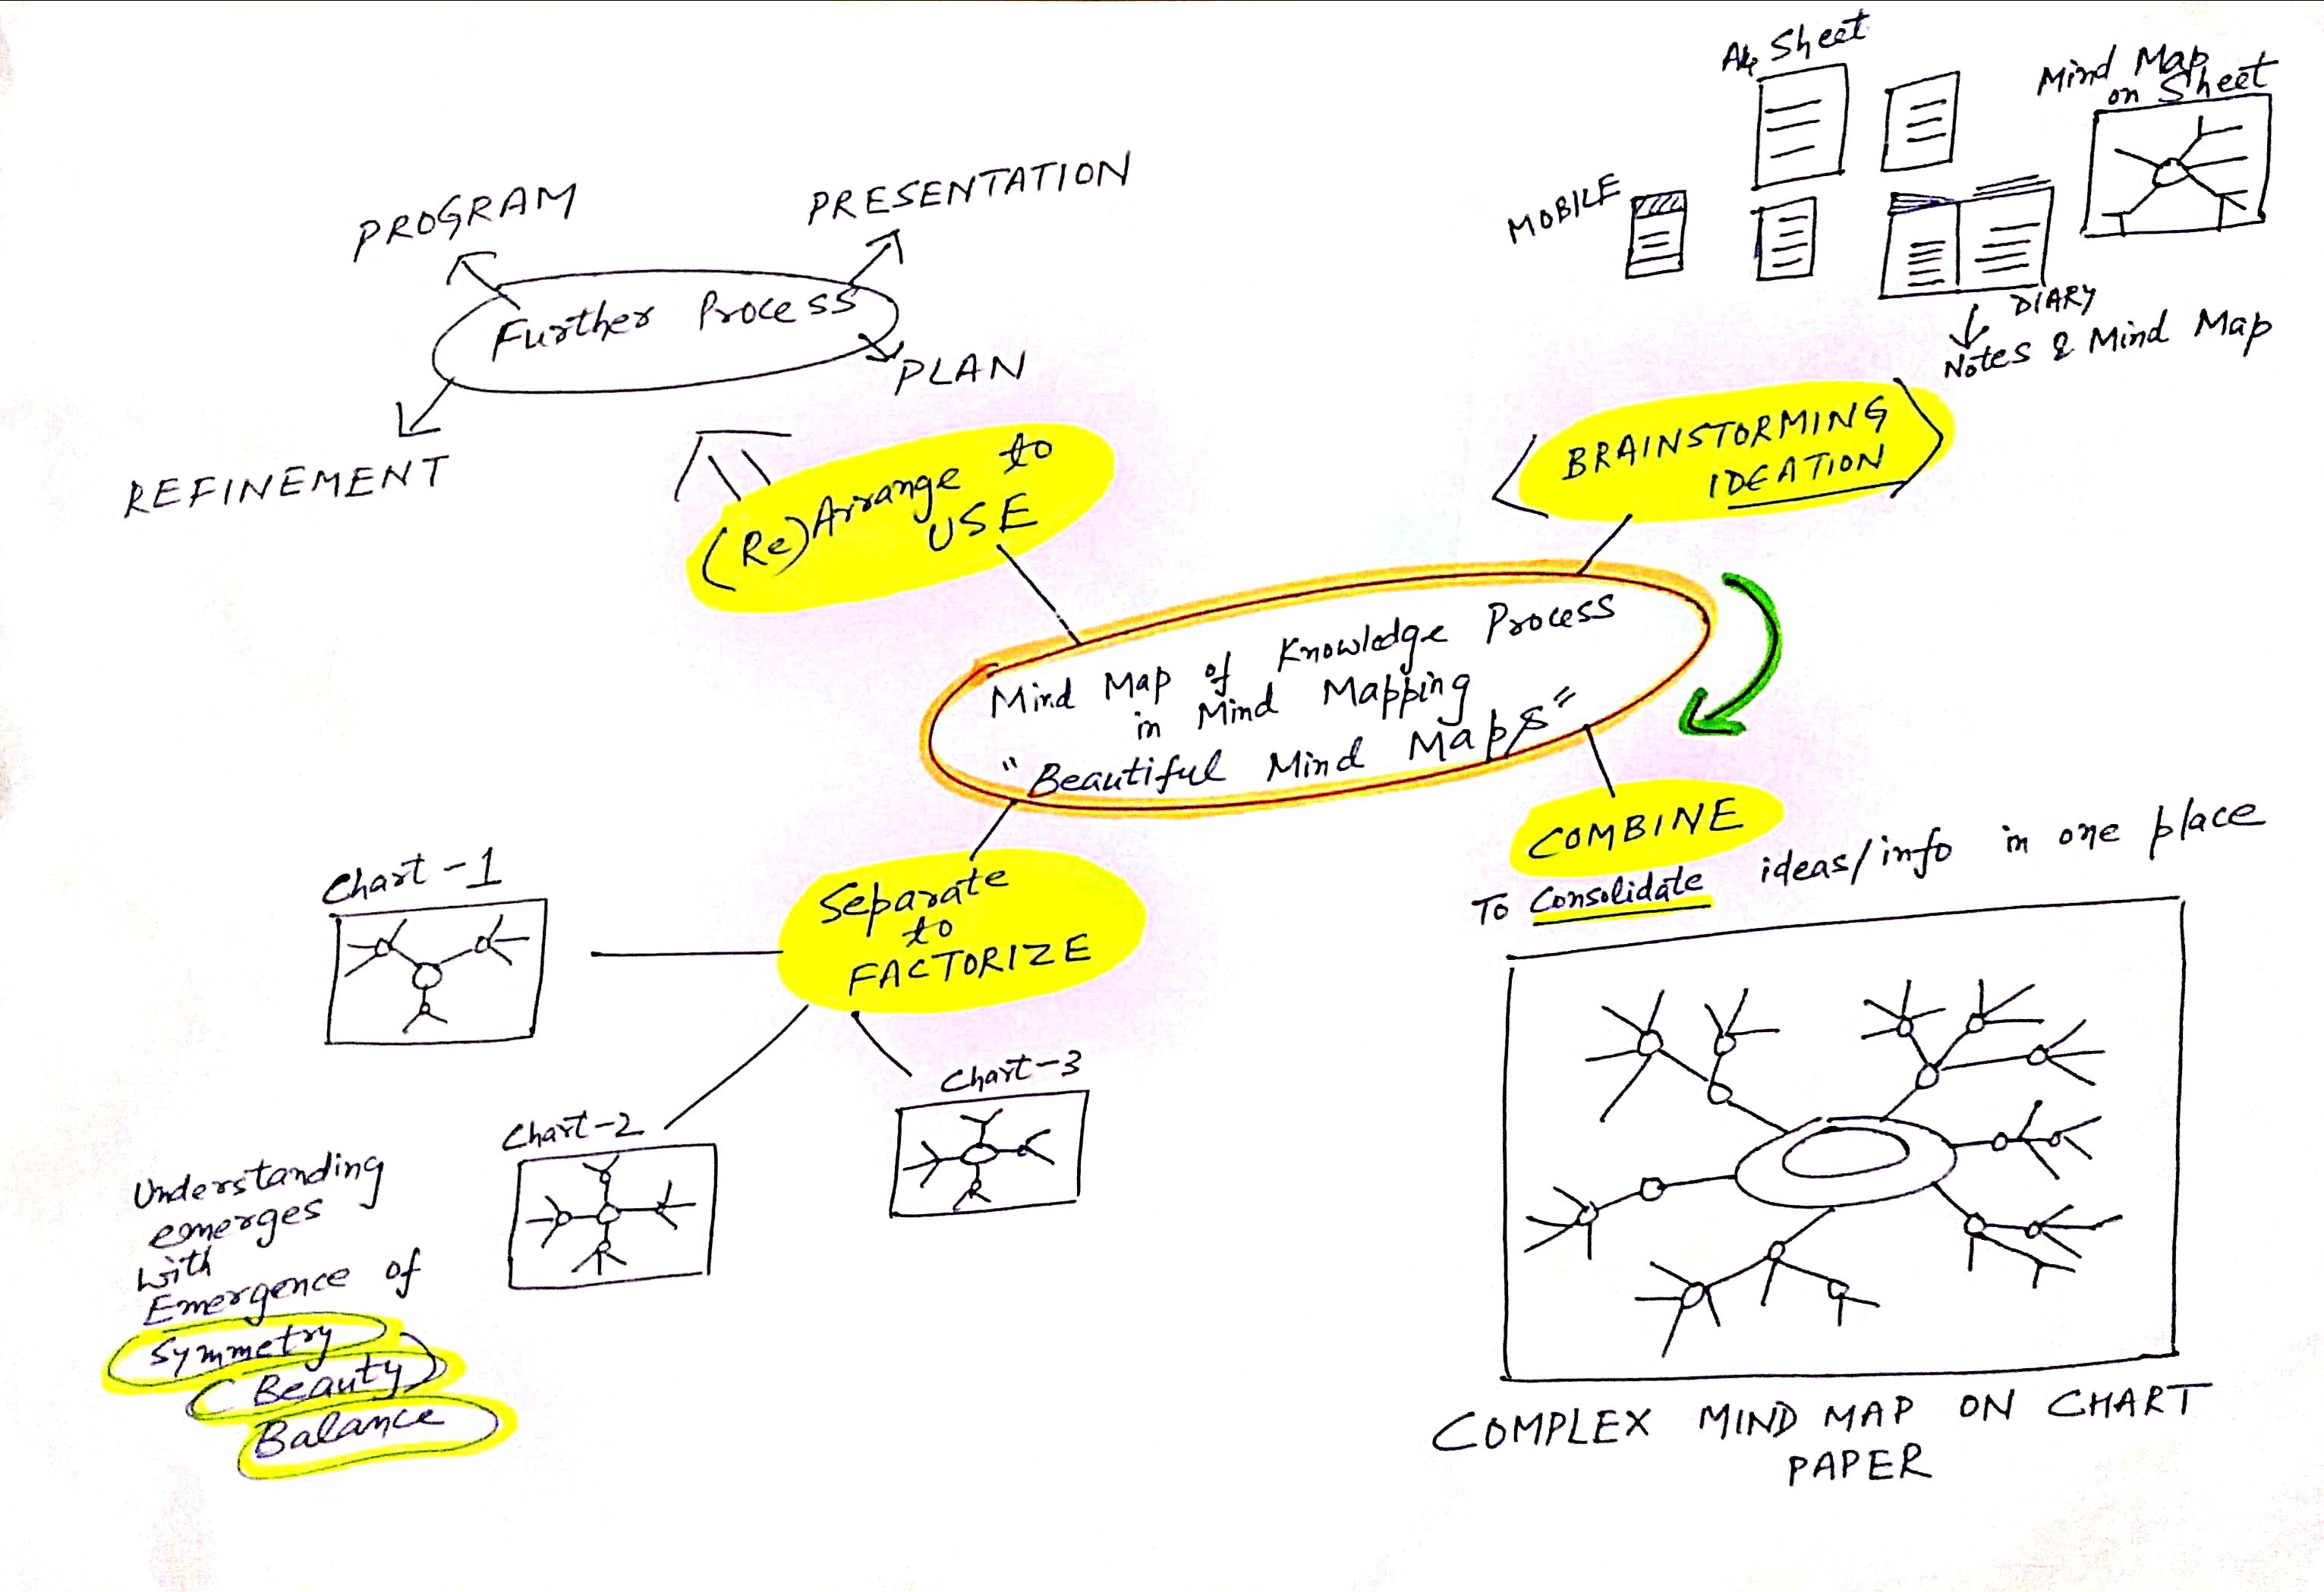 A4 Sheet
Mind Map
on Sheet
MOBILE
DIARY
Notes & Mind Map
PROGRAM
PRESENTATION
Further Process
PLAN
REFINEMENT
(Re)Arrange to
USE
BRAINSTORMING
IDEATION
Mind Map of Knowledge Process
in Mind Mapping
"Beautiful Mind Maps"
COMBINE
To Consolidate ideas/info in one place
Separate
to
FACTORIZE
Chart-1
Chart-2
Chart-3
Understanding
emerges
with
Emergence of
Symmetry
Beauty
Balance
COMPLEX MIND MAP ON CHART
PAPER